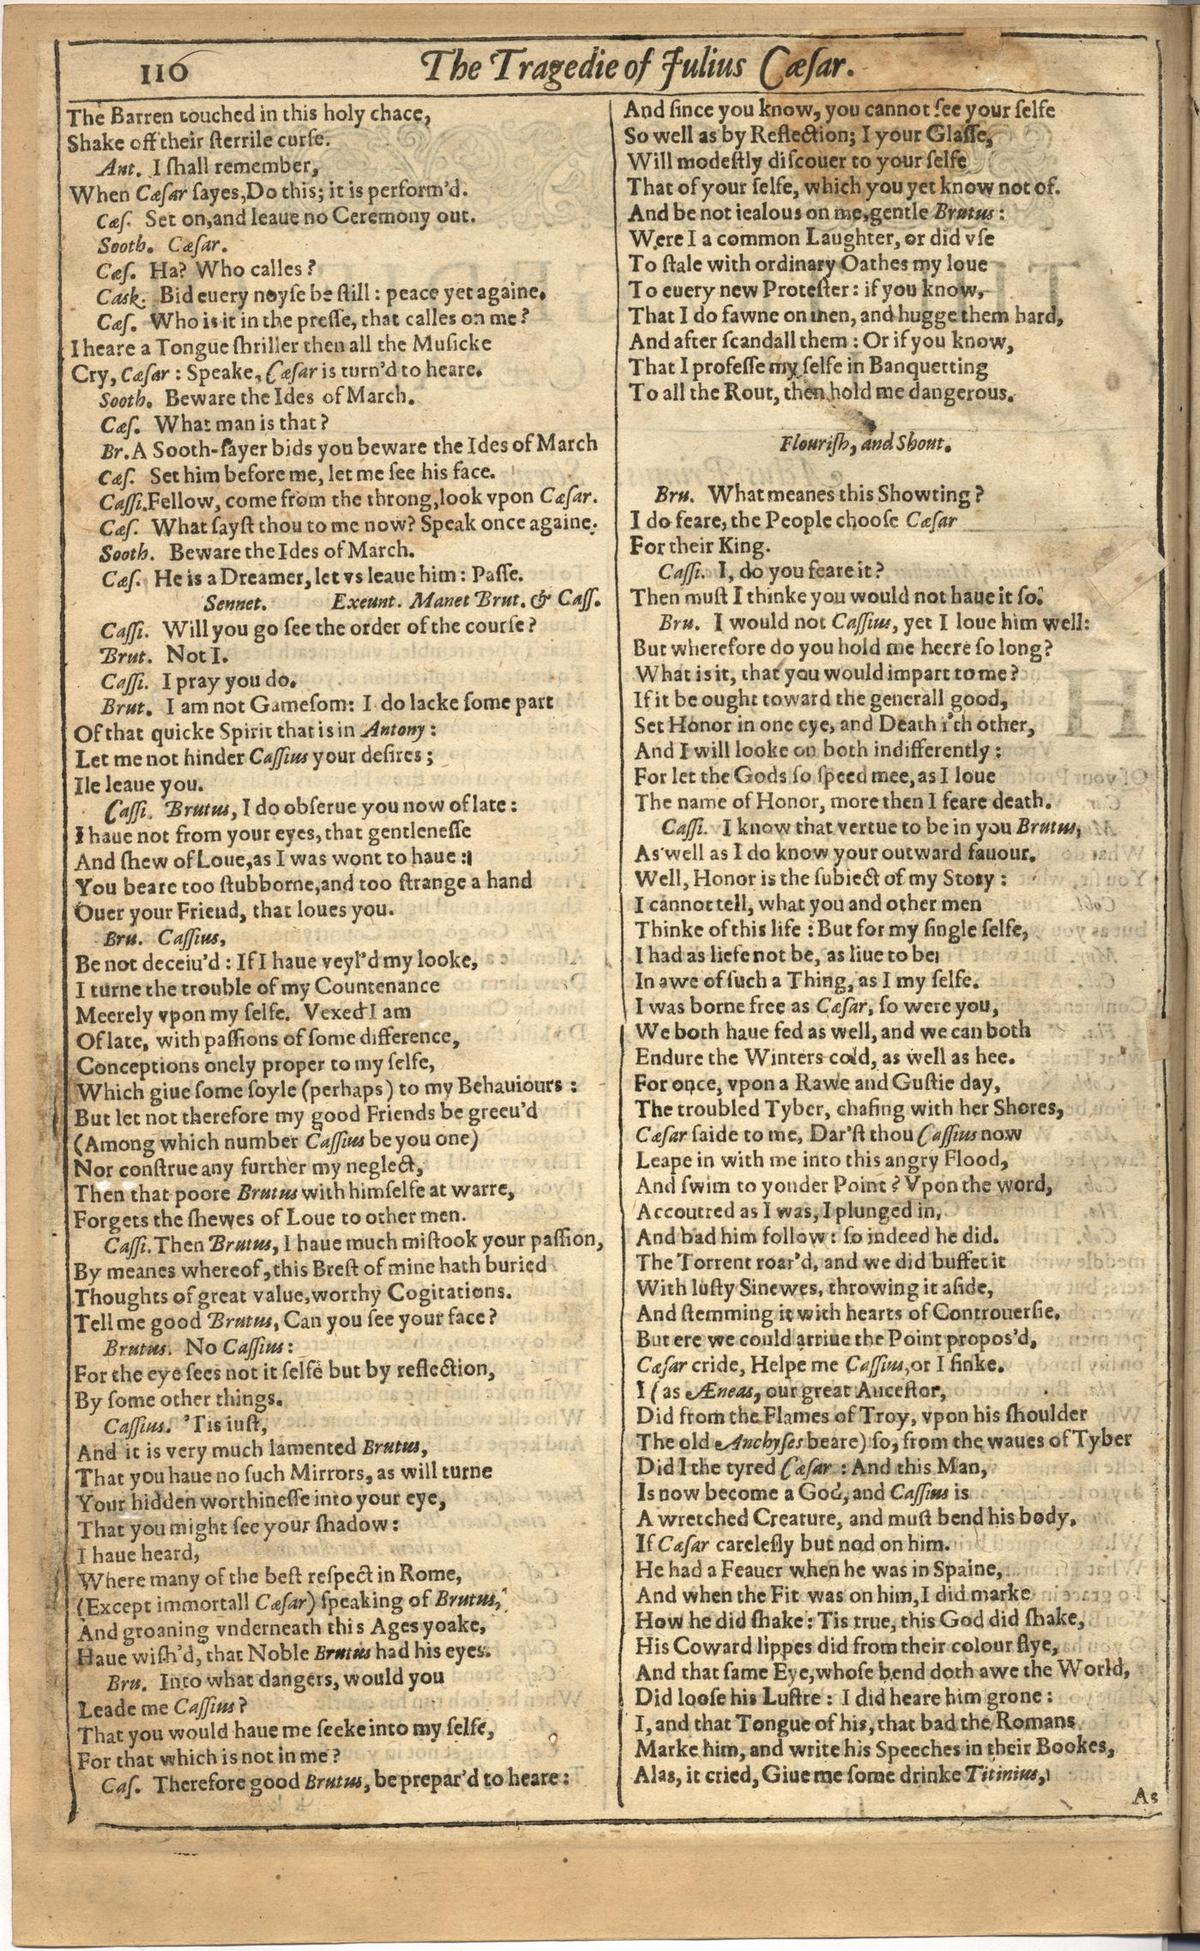 110
The Tragedie of Julius Cæſar.
The Barren touched in this holy chace,
Shake off their ſterrile curſe.
Ant. I ſhall remember,
When Cæſar ſayes, Do this; it is perform'd.
Cæſ. Set on, and leaue no Ceremony out.
Sooth. Cæſar.
Cæſ. Ha? Who calles?
Cask. Bid euery noyſe be ſtill: peace yet againe.
Cæſ. Who is it in the preſſe, that calles on me?
I heare a Tongue ſhriller then all the Muſicke
Cry, Cæſar: Speake, Cæſar is turn'd to heare.
Sooth. Beware the Ides of March.
Cæſ. What man is that?
Br. A Sooth-ſayer bids you beware the Ides of March
Cæſ. Set him before me, let me ſee his face.
Caſſi. Fellow, come from the throng, look vpon Cæſar.
Cæſ. What ſayſt thou to me now? Speak once againe.
Sooth. Beware the Ides of March.
Cæſ. He is a Dreamer, let vs leaue him: Paſſe.
Sennet. Exeunt. Manet Brut. & Caſſ.
Caſſi. Will you go ſee the order of the courſe?
Brut. Not I.
Caſſi. I pray you do.
Brut. I am not Gameſom: I do lacke ſome part
Of that quicke Spirit that is in Antony:
Let me not hinder Caſſius your deſires;
Ile leaue you.
Caſſi. Brutus, I do obſerue you now of late:
I haue not from your eyes, that gentleneſſe
And ſhew of Loue, as I was wont to haue:
You beare too ſtubborne, and too ſtrange a hand
Ouer your Friend, that loues you.
Bru. Caſſius,
Be not deceiu'd: If I haue veyl'd my looke,
I turne the trouble of my Countenance
Meerely vpon my ſelfe. Vexed I am
Of late, with paſſions of ſome difference,
Conceptions onely proper to my ſelfe,
Which giue ſome ſoyle (perhaps) to my Behauiours:
But let not therefore my good Friends be greeu'd
(Among which number Caſſius be you one)
Nor conſtrue any further my neglect,
Then that poore Brutus with himſelfe at warre,
Forgets the ſhewes of Loue to other men.
Caſſi. Then Brutus, I haue much miſtook your paſſion,
By meanes whereof, this Breſt of mine hath buried
Thoughts of great value, worthy Cogitations.
Tell me good Brutus, Can you ſee your face?
Brutus. No Caſſius:
For the eye ſees not it ſelfe but by reflection,
By ſome other things.
Caſſius. 'Tis iuſt,
And it is very much lamented Brutus,
That you haue no ſuch Mirrors, as will turne
Your hidden worthineſſe into your eye,
That you might ſee your ſhadow:
I haue heard,
Where many of the beſt reſpect in Rome,
(Except immortall Cæſar) ſpeaking of Brutus,
And groaning vnderneath this Ages yoake,
Haue wiſh'd, that Noble Brutus had his eyes.
Bru. Into what dangers, would you
Leade me Caſſius?
That you would haue me ſeeke into my ſelfe,
For that which is not in me?
Caſ. Therefore good Brutus, be prepar'd to heare:
And ſince you know, you cannot ſee your ſelfe
So well as by Reflection; I your Glaſſe,
Will modeſtly diſcouer to your ſelfe
That of your ſelfe, which you yet know not of.
And be not iealous on me, gentle Brutus:
Were I a common Laughter, or did vſe
To ſtale with ordinary Oathes my loue
To euery new Proteſter: if you know,
That I do fawne on men, and hugge them hard,
And after ſcandall them: Or if you know,
That I profeſſe my ſelfe in Banquetting
To all the Rout, then hold me dangerous.
Flouriſh, and Shout.
Bru. What meanes this Showting?
I do feare, the People chooſe Cæſar
For their King.
Caſſi. I, do you feare it?
Then muſt I thinke you would not haue it ſo.
Bru. I would not Caſſius, yet I loue him well:
But wherefore do you hold me heere ſo long?
What is it, that you would impart to me?
If it be ought toward the generall good,
Set Honor in one eye, and Death i'th other,
And I will looke on both indifferently:
For let the Gods ſo ſpeed mee, as I loue
The name of Honor, more then I feare death.
Caſſi. I know that vertue to be in you Brutus,
As well as I do know your outward fauour.
Well, Honor is the ſubiect of my Story:
I cannot tell, what you and other men
Thinke of this life: But for my ſingle ſelfe,
I had as liefe not be, as liue to be
In awe of ſuch a Thing, as I my ſelfe.
I was borne free as Cæſar, ſo were you,
We both haue fed as well, and we can both
Endure the Winters cold, as well as hee.
For once, vpon a Rawe and Guſtie day,
The troubled Tyber, chafing with her Shores,
Cæſar ſaide to me, Dar'ſt thou Caſſius now
Leape in with me into this angry Flood,
And ſwim to yonder Point? Vpon the word,
Accoutred as I was, I plunged in,
And bad him follow: ſo indeed he did.
The Torrent roar'd, and we did buffet it
With luſty Sinewes, throwing it aſide,
And ſtemming it with hearts of Controuerſie.
But ere we could arriue the Point propos'd,
Cæſar cride, Helpe me Caſſius, or I ſinke.
I (as Æneas, our great Anceſtor,
Did from the Flames of Troy, vpon his ſhoulder
The old Anchyſes beare) ſo, from the waues of Tyber
Did I the tyred Cæſar: And this Man,
Is now become a God, and Caſſius is
A wretched Creature, and muſt bend his body,
If Cæſar careleſly but nod on him.
He had a Feauer when he was in Spaine,
And when the Fit was on him, I did marke
How he did ſhake: Tis true, this God did ſhake,
His Coward lippes did from their colour flye,
And that ſame Eye, whoſe bend doth awe the World,
Did looſe his Luſtre: I did heare him grone:
I, and that Tongue of his, that bad the Romans
Marke him, and write his Speeches in their Bookes,
Alas, it cried, Giue me ſome drinke Titinius,
As